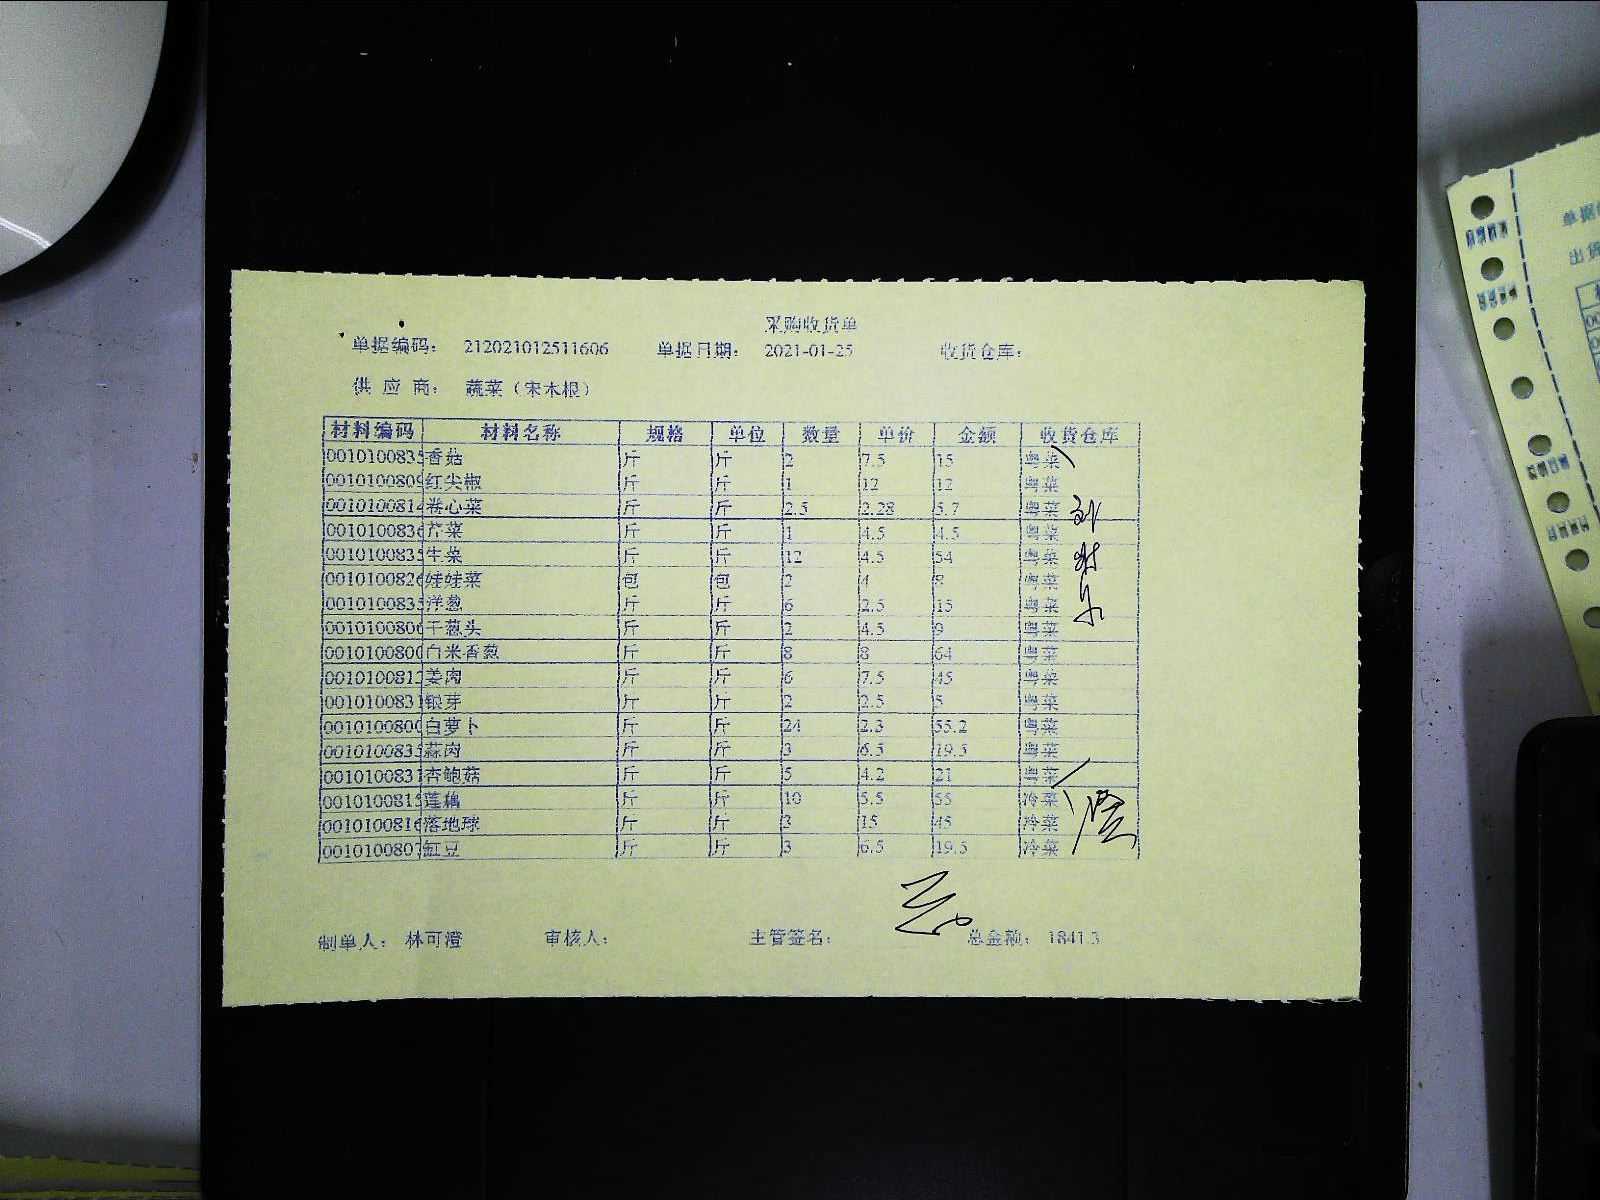 采购收货单
单据编码： 212021012511606 单据日期： 2021-01-25 收货仓库：
供 应 商： 蔬菜（宋木根）
材料编码 材料名称 规格 单位 数量 单价 金额 收货仓库
0010100835 香菇 斤 斤 2 7.5 15 粤菜
0010100809 红尖椒 斤 斤 1 12 12 粤菜
0010100814 卷心菜 斤 斤 2.5 2.28 5.7 粤菜
0010100836 芹菜 斤 斤 1 4.5 4.5 粤菜
0010100835 生菜 斤 斤 12 4.5 54 粤菜
0010100826 娃娃菜 包 包 2 4 8 粤菜
0010100835 洋葱 斤 斤 6 2.5 15 粤菜
0010100806 干葱头 斤 斤 2 4.5 9 粤菜
0010100800 白米香葱 斤 斤 8 8 64 粤菜
0010100812 姜肉 斤 斤 6 7.5 45 粤菜
0010100831 银芽 斤 斤 2 2.5 5 粤菜
0010100800 白萝卜 斤 斤 24 2.3 55.2 粤菜
0010100835 蒜肉 斤 斤 3 6.5 19.5 粤菜
0010100831 杏鲍菇 斤 斤 5 4.2 21 粤菜
0010100815 莲藕 斤 斤 10 5.5 55 冷菜
0010100816 落地球 斤 斤 3 15 45 冷菜
0010100807 缸豆 斤 斤 3 6.5 19.5 冷菜
制单人： 林可澄 审核人： 主管签名： 总金额： 1841.3
单据
出货